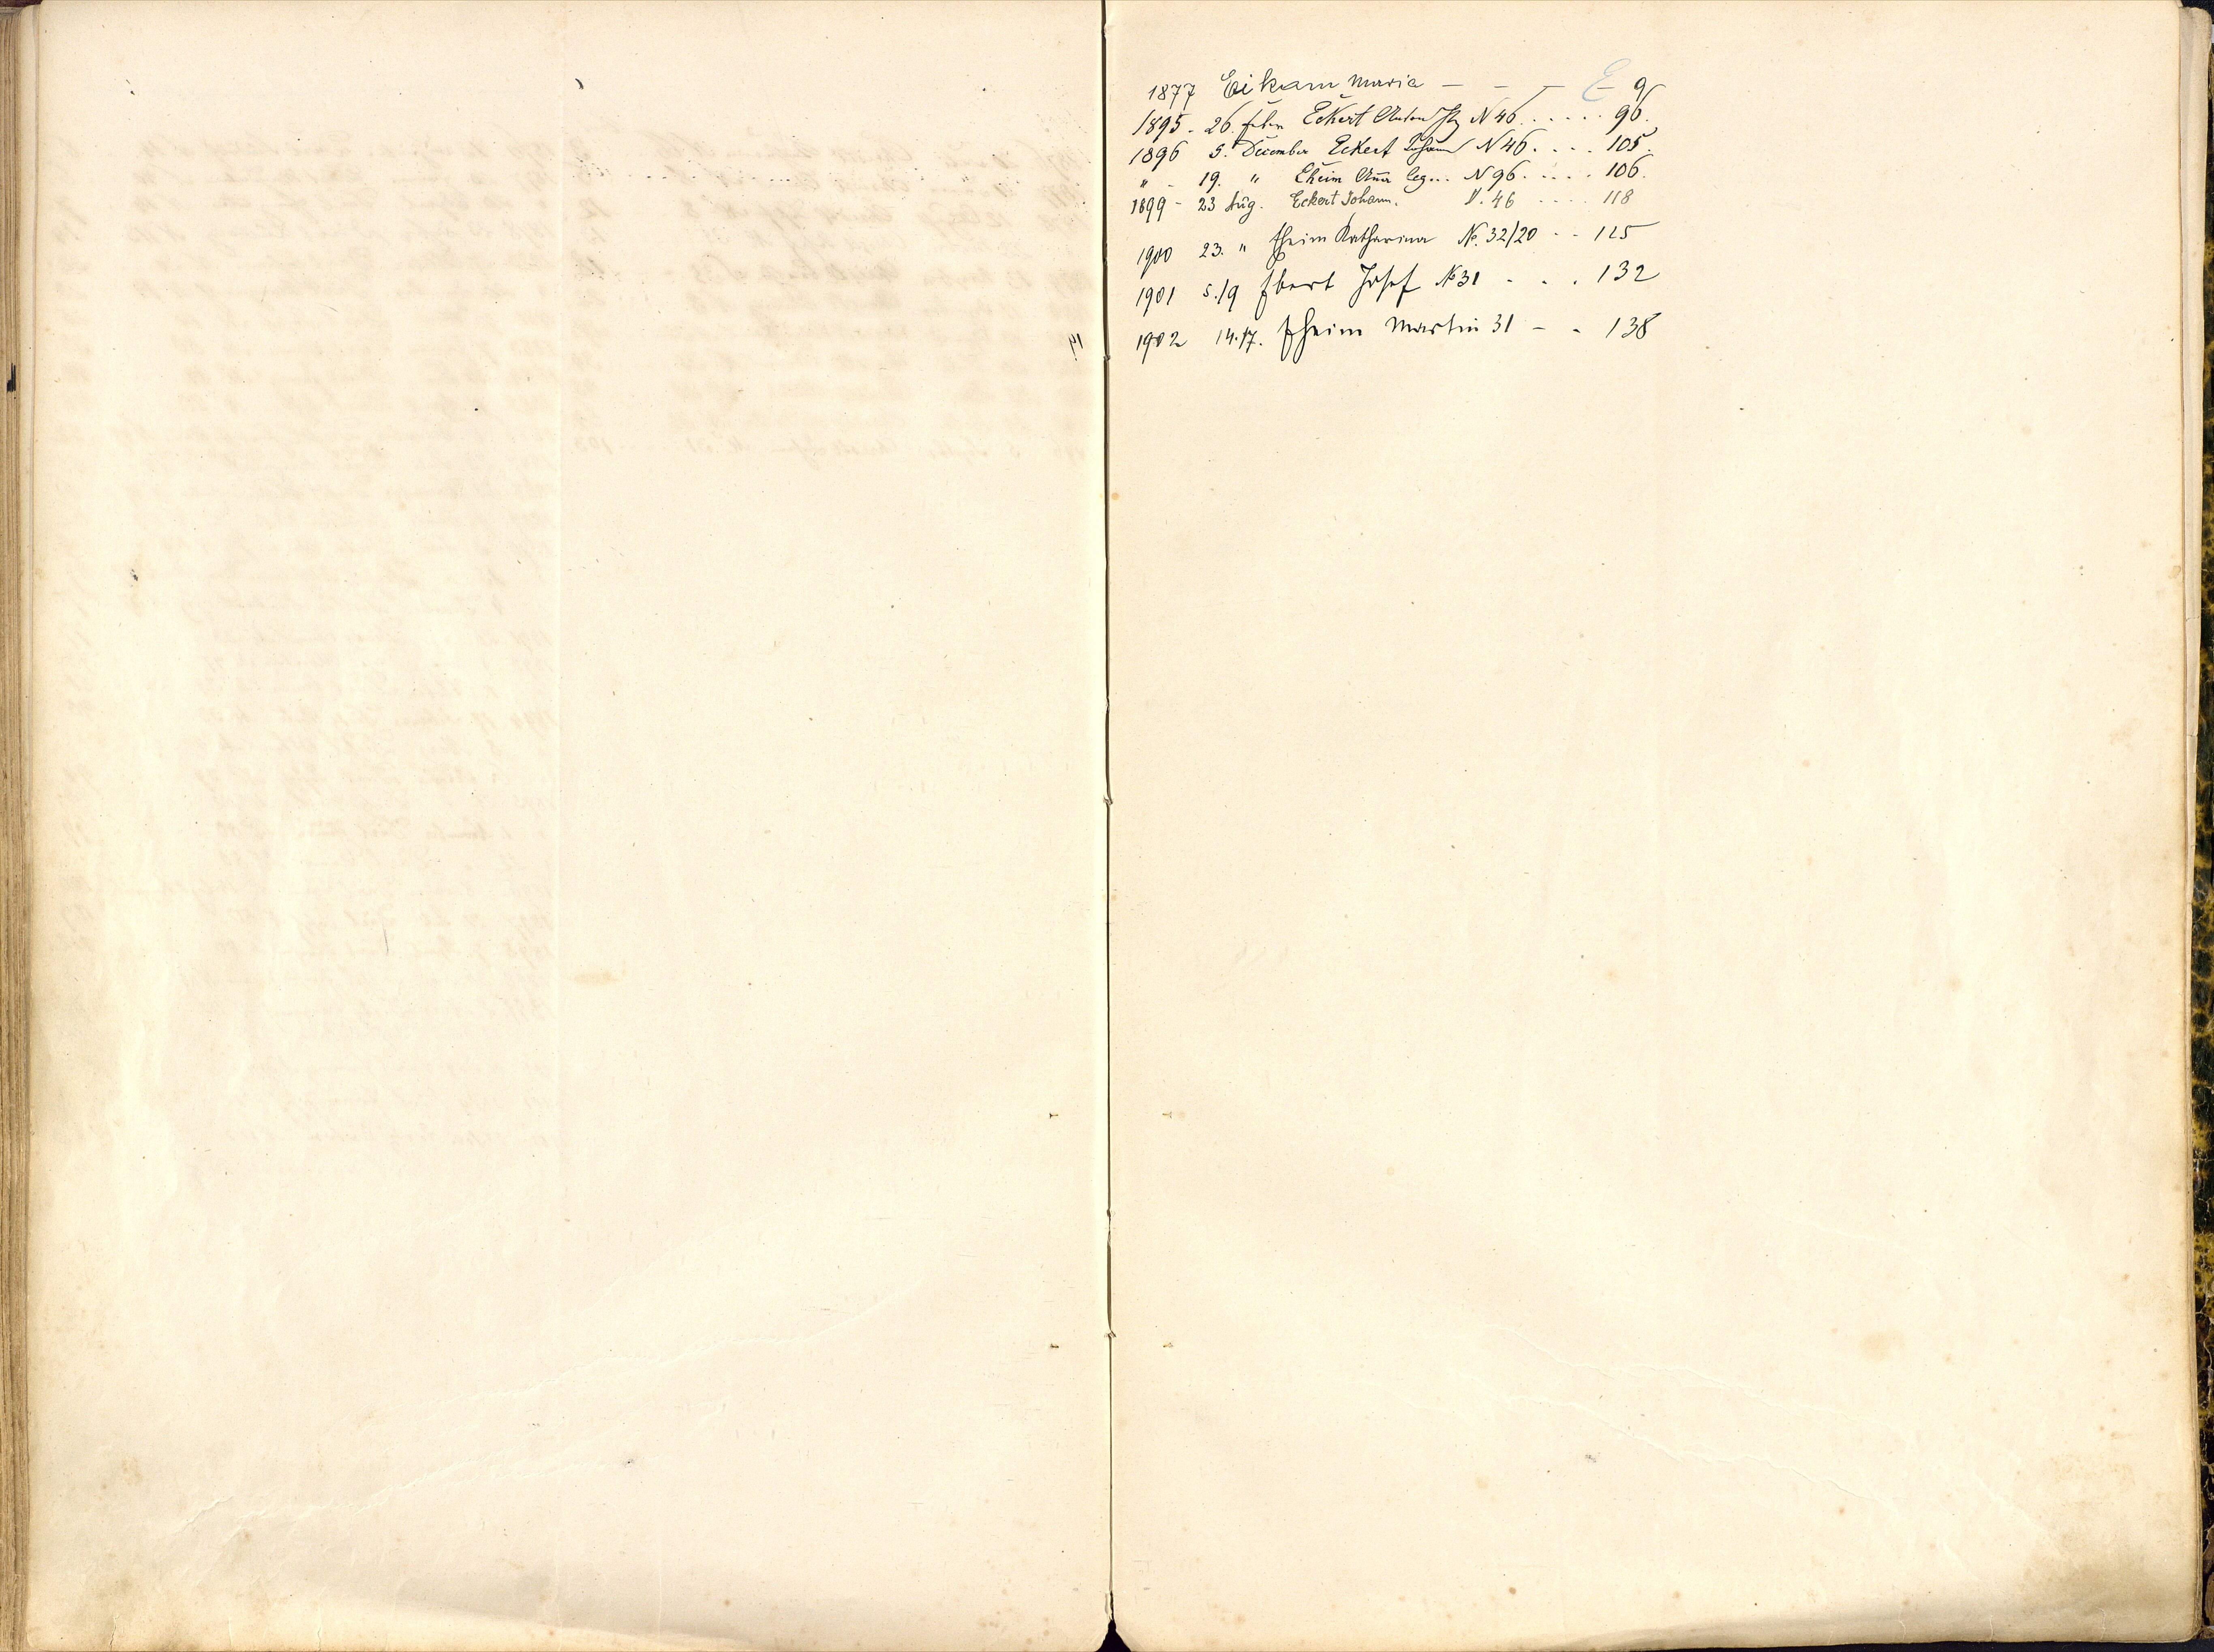 E
1877 Eikam Maria - - - - 9
1895 - 26. Febr Eckert Anton N 46 ..... 90.
1896 5. December Eckert Johann N 46. ... 105.
" - 19. " Eheim Anna leg... N 96. .... 106.
1899 - 23 Aug. Eckert Johann. N. 46 .... 118
1900 23. " Eheim Katharina No. 32/20 -- 125
1901 5./9 Ebert Josef No 31 - . . 132
1902 14./7. Eheim Martin 31 - - 138